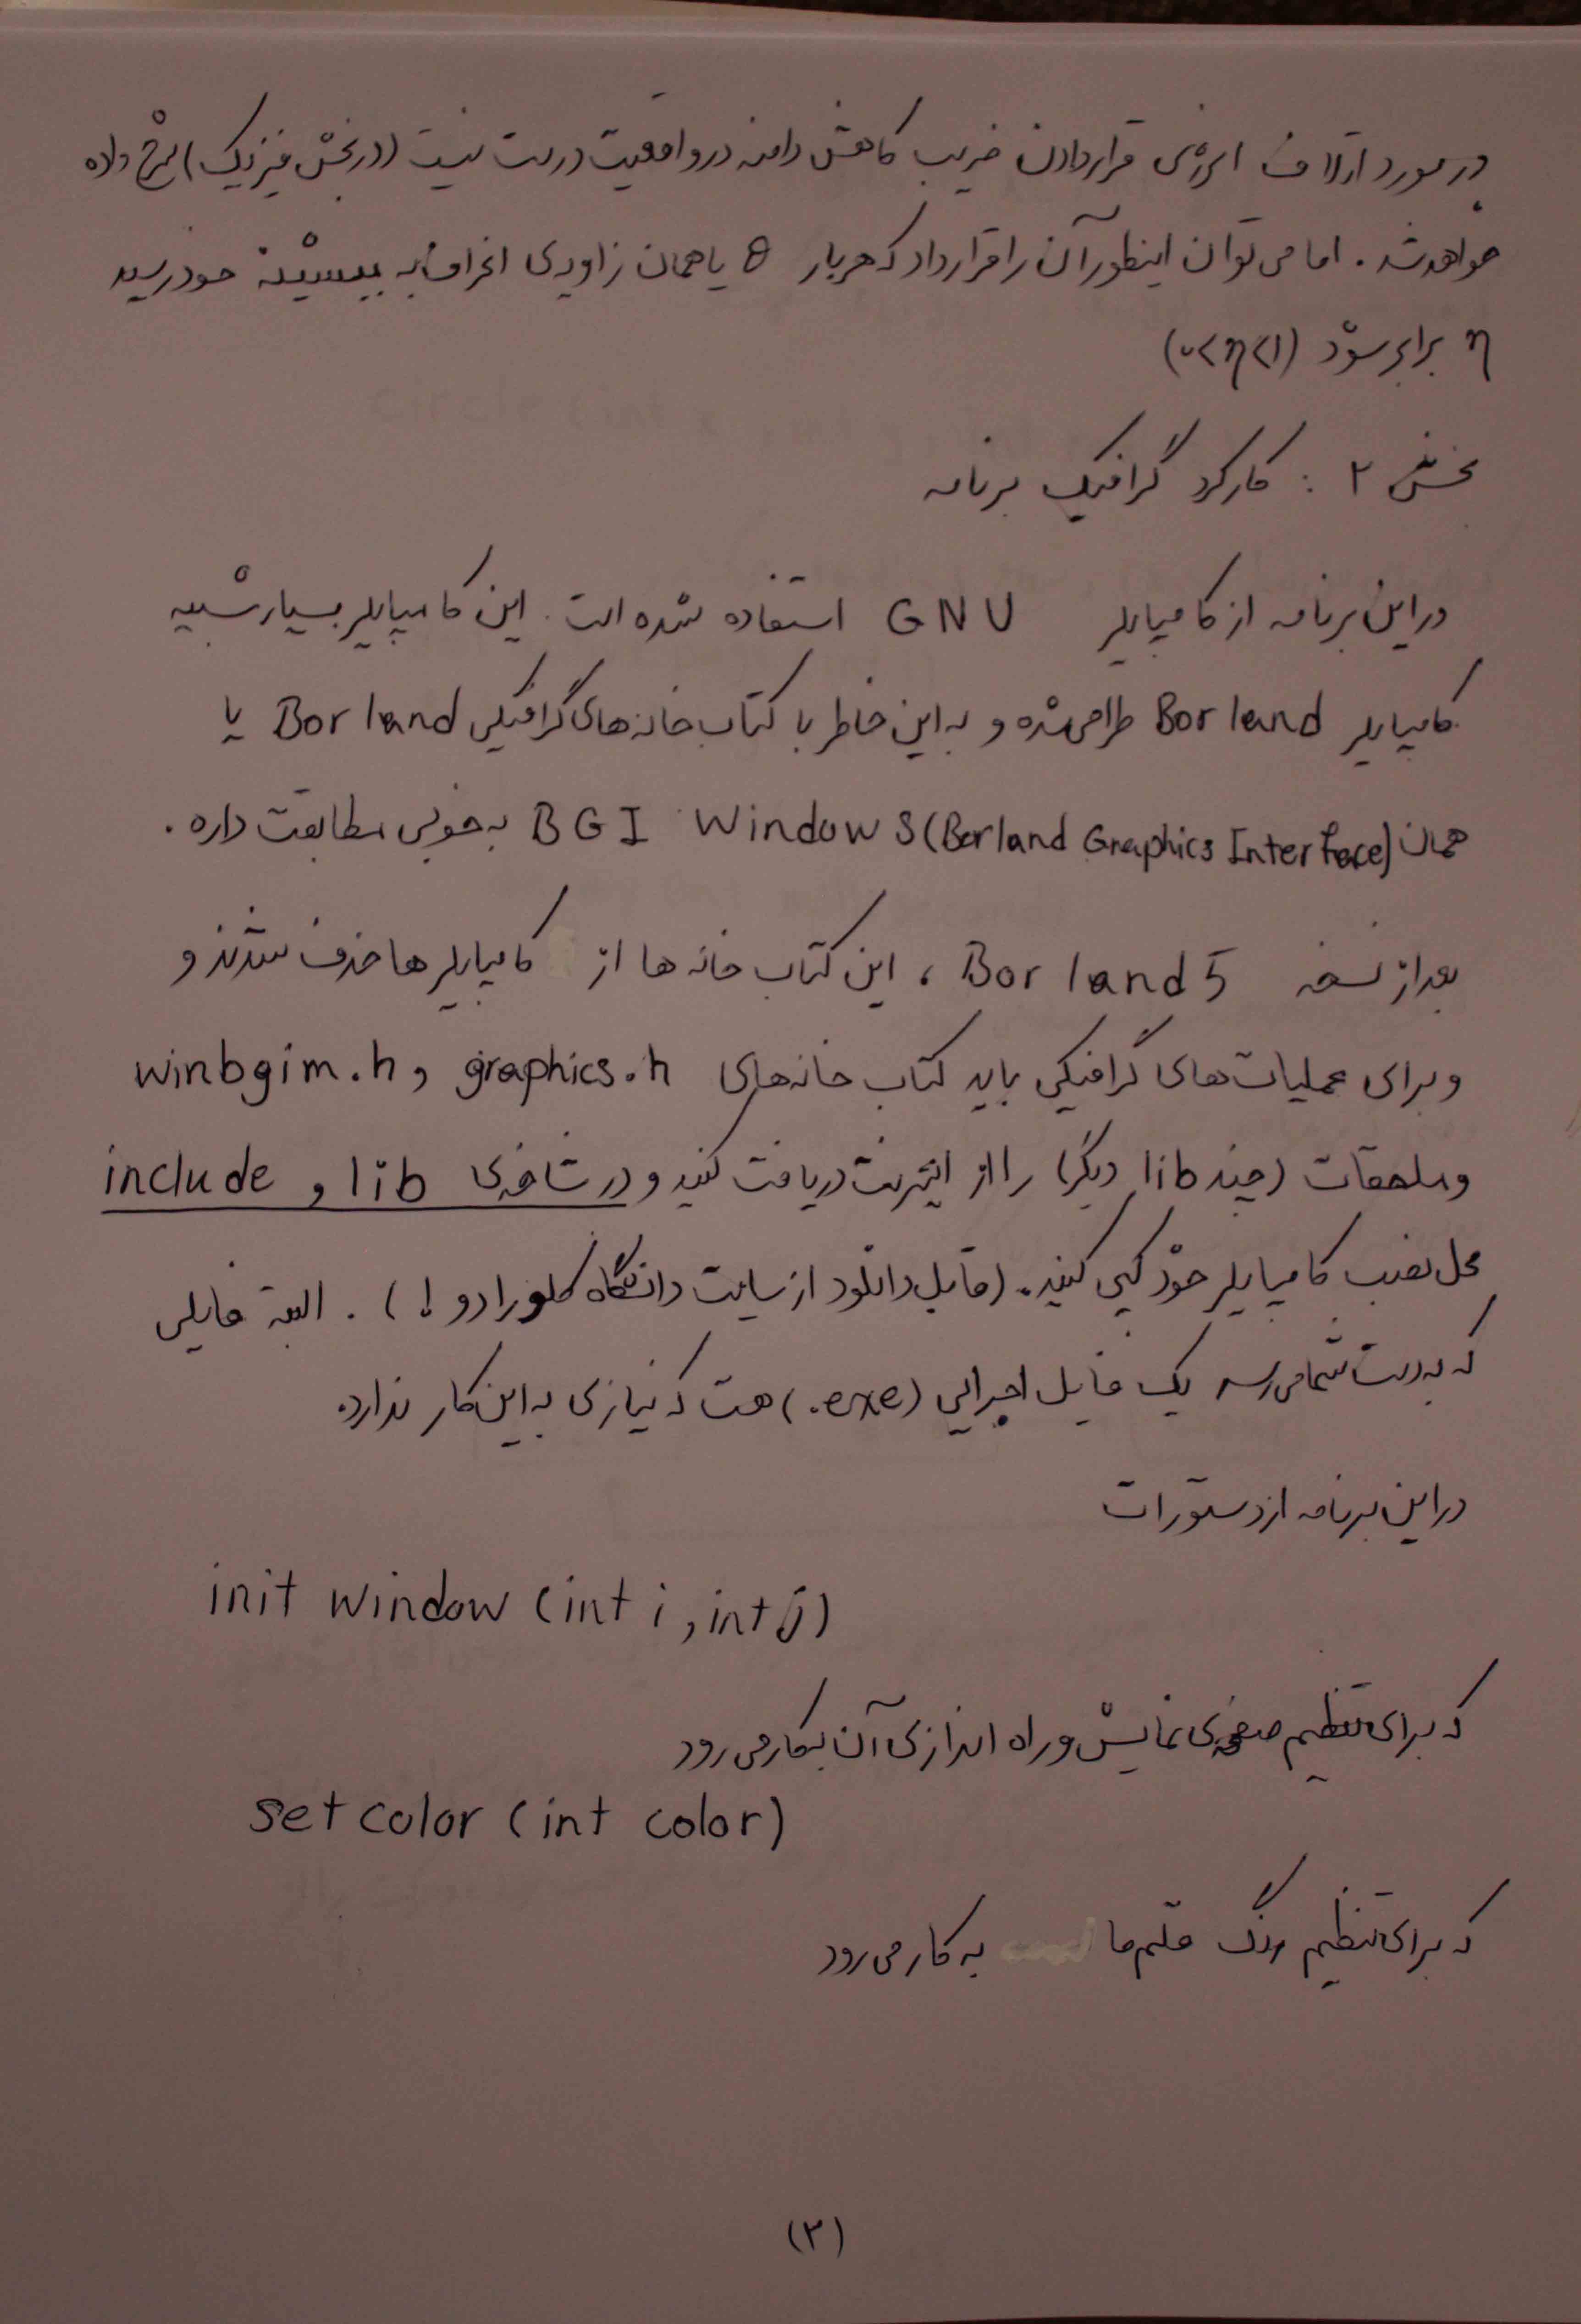 در مورد اتلاف انرژی قراردادن ضریب کاهش دامنه در واقعیت درست نیست (در بخش فیزیک) شرح داده
خواهد شد. اما می توان اینطور آن را قرار داد که هر بار θ یا همان زاویه‌ی انحراف به بیشینه خود رسید
η برابر شود (۰<η<۱)
بخش ۲ : کارکرد گرافیک برنامه
در این برنامه از کامپایلر GNU استفاده شده است. این کامپایلر بسیار شبیه
کامپایلر Borland طراحی شده و به این خاطر با کتاب خانه های گرافیکی Borland یا
همان BGI Windows (Borland Graphics Interface) به خوبی مطابقت داره.
بعد از نسخه Borland 5 ، این کتاب خانه ها از کامپایلر ها حذف شدند و
و برای عملیات های گرافیکی باید کتاب خانه های graphics.h و winbgim.h
و ملحقات (چند lib دیگر) را از اینترنت دریافت کنید و در شاخه‌ی lib و include
محل نصب کامپایلر خود کپی کنید. (قابل دانلود از سایت دانشگاه کلورادو !) . البته فایلی
که به دست شما می رسه یک فایل اجرایی (.exe) هست که نیازی به این کار نداره.
در این برنامه از دستورات
init window (int i, int j)
که برای تنظیم صفحه‌ی نمایش و راه اندازی آن بکار می رود
set color (int color)
که برای تنظیم رنگ قلم ما به کار می رود
(۲)